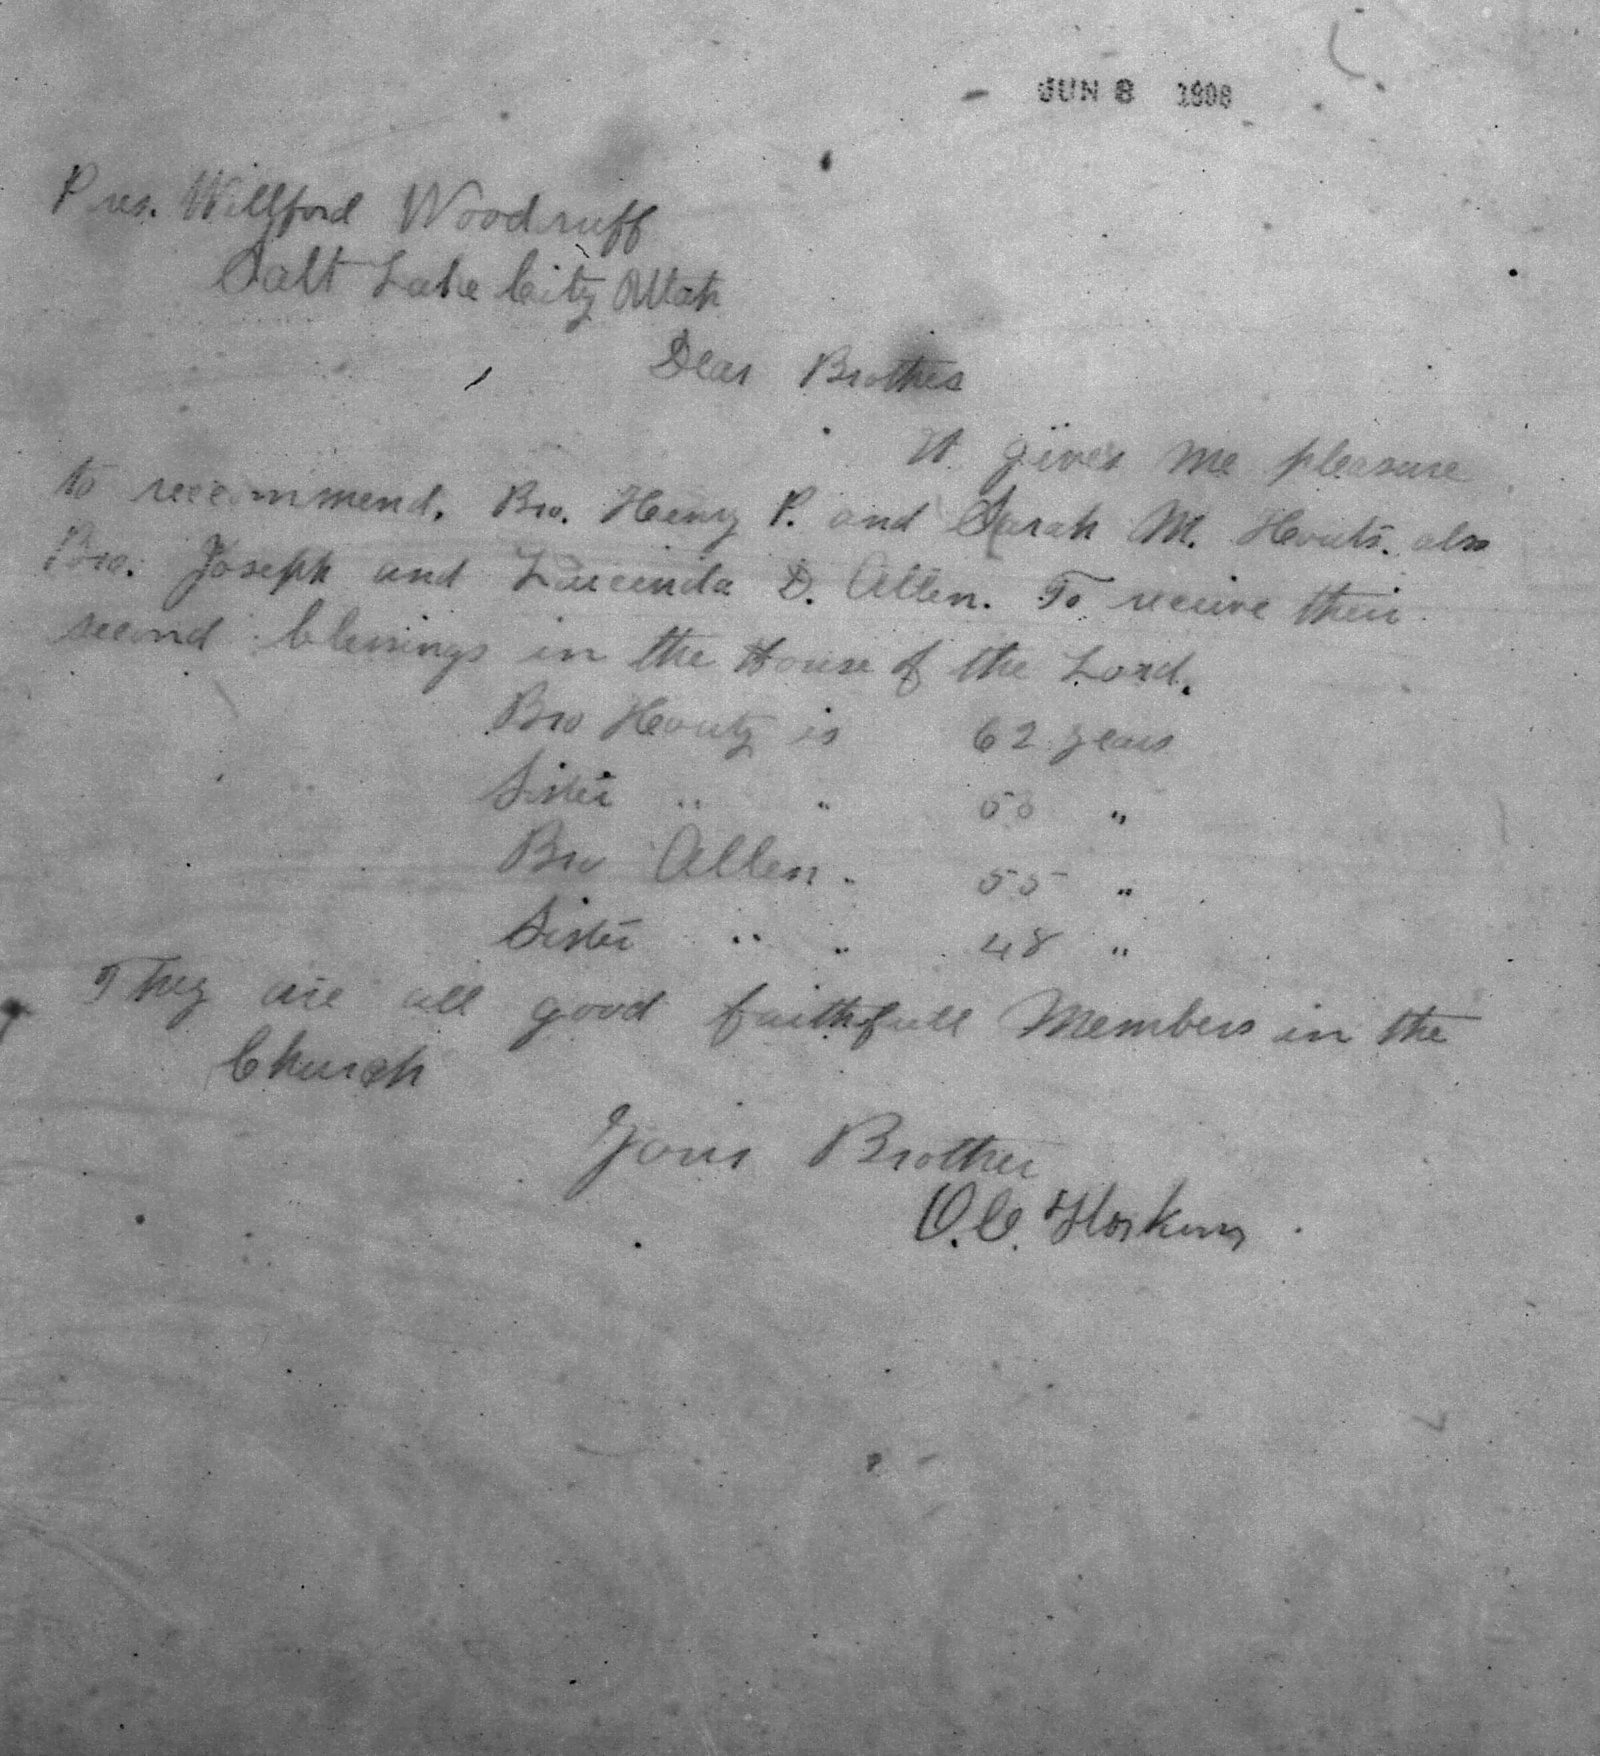 JUN 8 1898
Pres. Willford Woodruff
Salt Lake City Utah
Dear Brother
It gives me pleasure
to recommend, Bro. Henry P. and Sarah M. Houts. also
Bro. Joseph and Lucinda D. Allen. To receive their
second blessings in the House of the Lord.
Bro Houtz is 62 years
Sister " "
Bro Allen " 55 "
Sister " " 48 "
They are all good faithfull Members in the
Church
Yours Brother
O.C. Hoskins